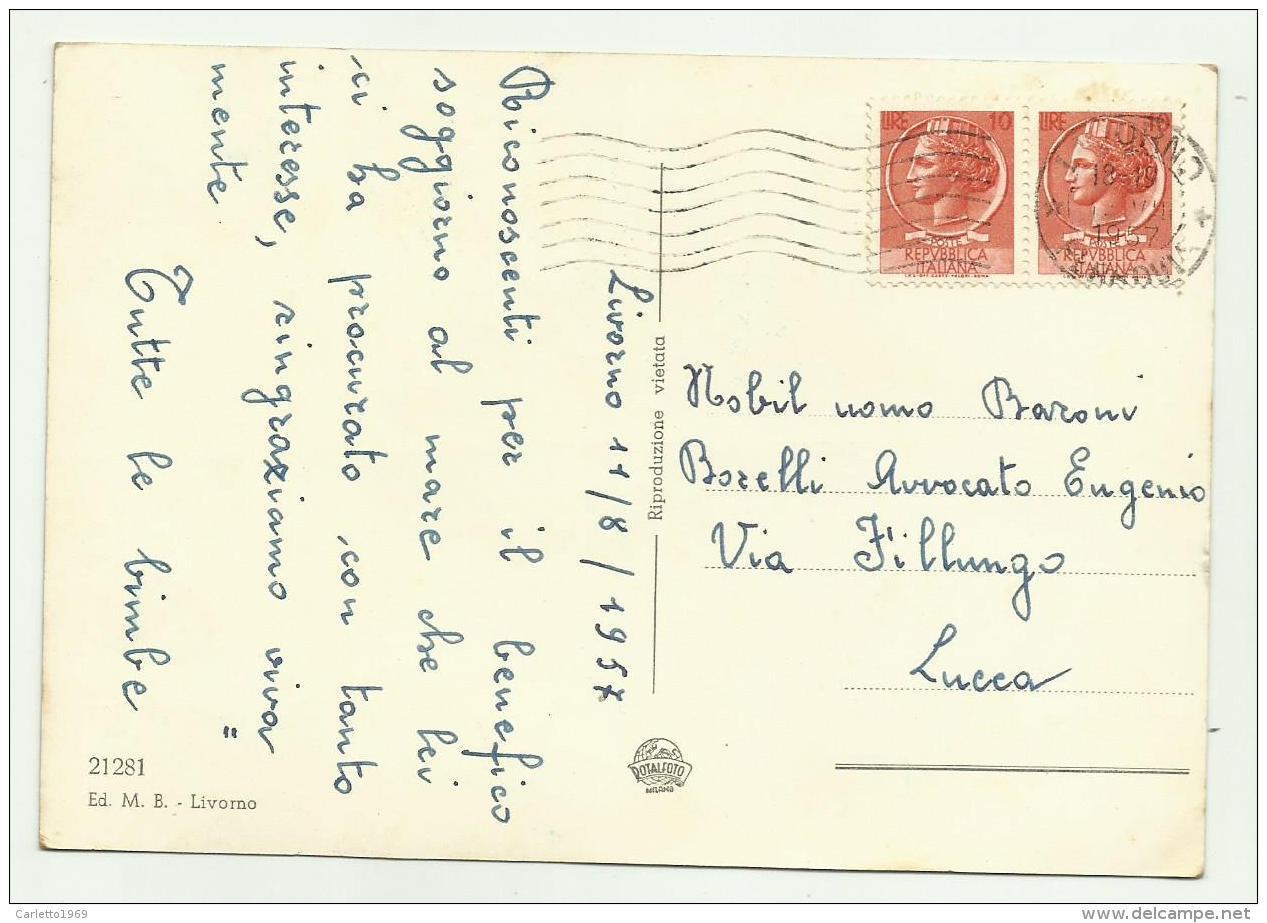 Livorno 11/8/1957
Riconoscenti per il benefico
soggiorno al mare che lei
ci ha procurato con tanto
interesse, ringraziamo viva=
mente
Tutte le bimbe
21281
Ed. M. B. - Livorno
Riproduzione vietata
ROTALFOTO
MILANO
LIRE 10
POSTE
REPVBBLICA
ITALIANA
LIRE
POSTE
REPVBBLICA
ITALIANA
18-19
1957
Nobil uomo Baroni
Borelli Avvocato Eugenio
Via Fillungo
Lucca
Carletto1969
www.delcampe.net